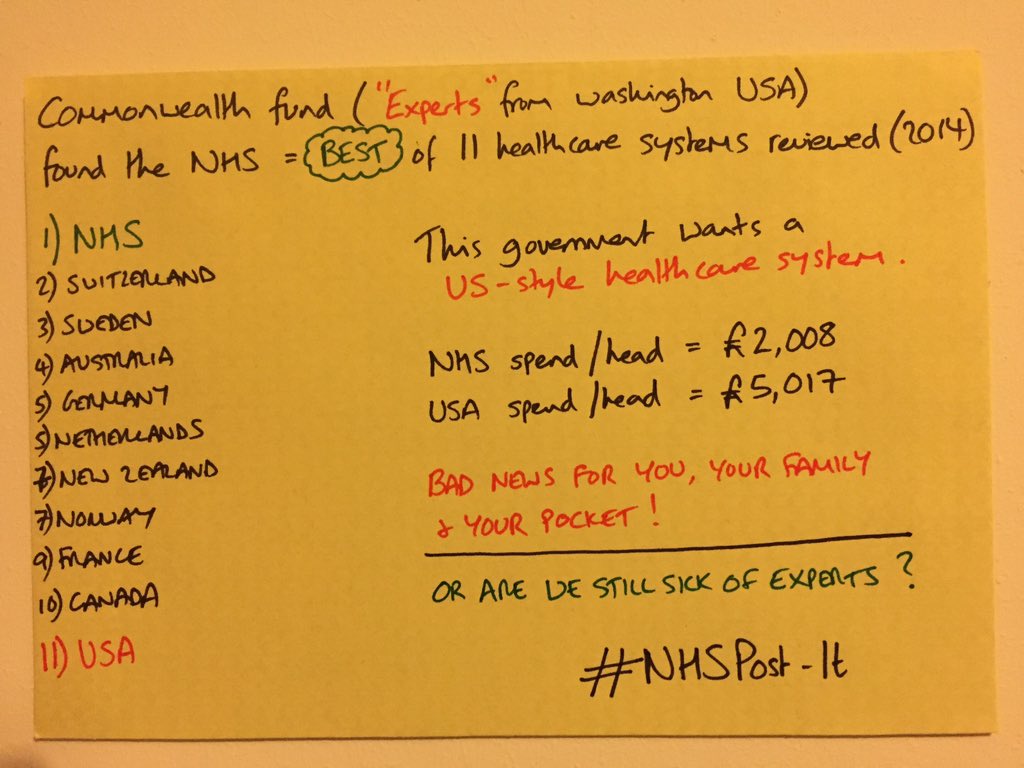 Commonwealth fund ("Experts" from washington USA)
found the NHS = BEST of 11 healthcare systems reviewed (2014)
1) NHS
2) SWITZERLAND
3) SWEDEN
4) AUSTRALIA
5) GERMANY
5) NETHERLANDS
7) NEW ZEALAND
7) NORWAY
9) FRANCE
10) CANADA
11) USA
This government wants a
US-style healthcare system.
NHS spend/head = £2,008
USA spend/head = £5,017
BAD NEWS FOR YOU, YOUR FAMILY
& YOUR POCKET!
OR ARE WE STILL SICK OF EXPERTS?
#NHSPost-It